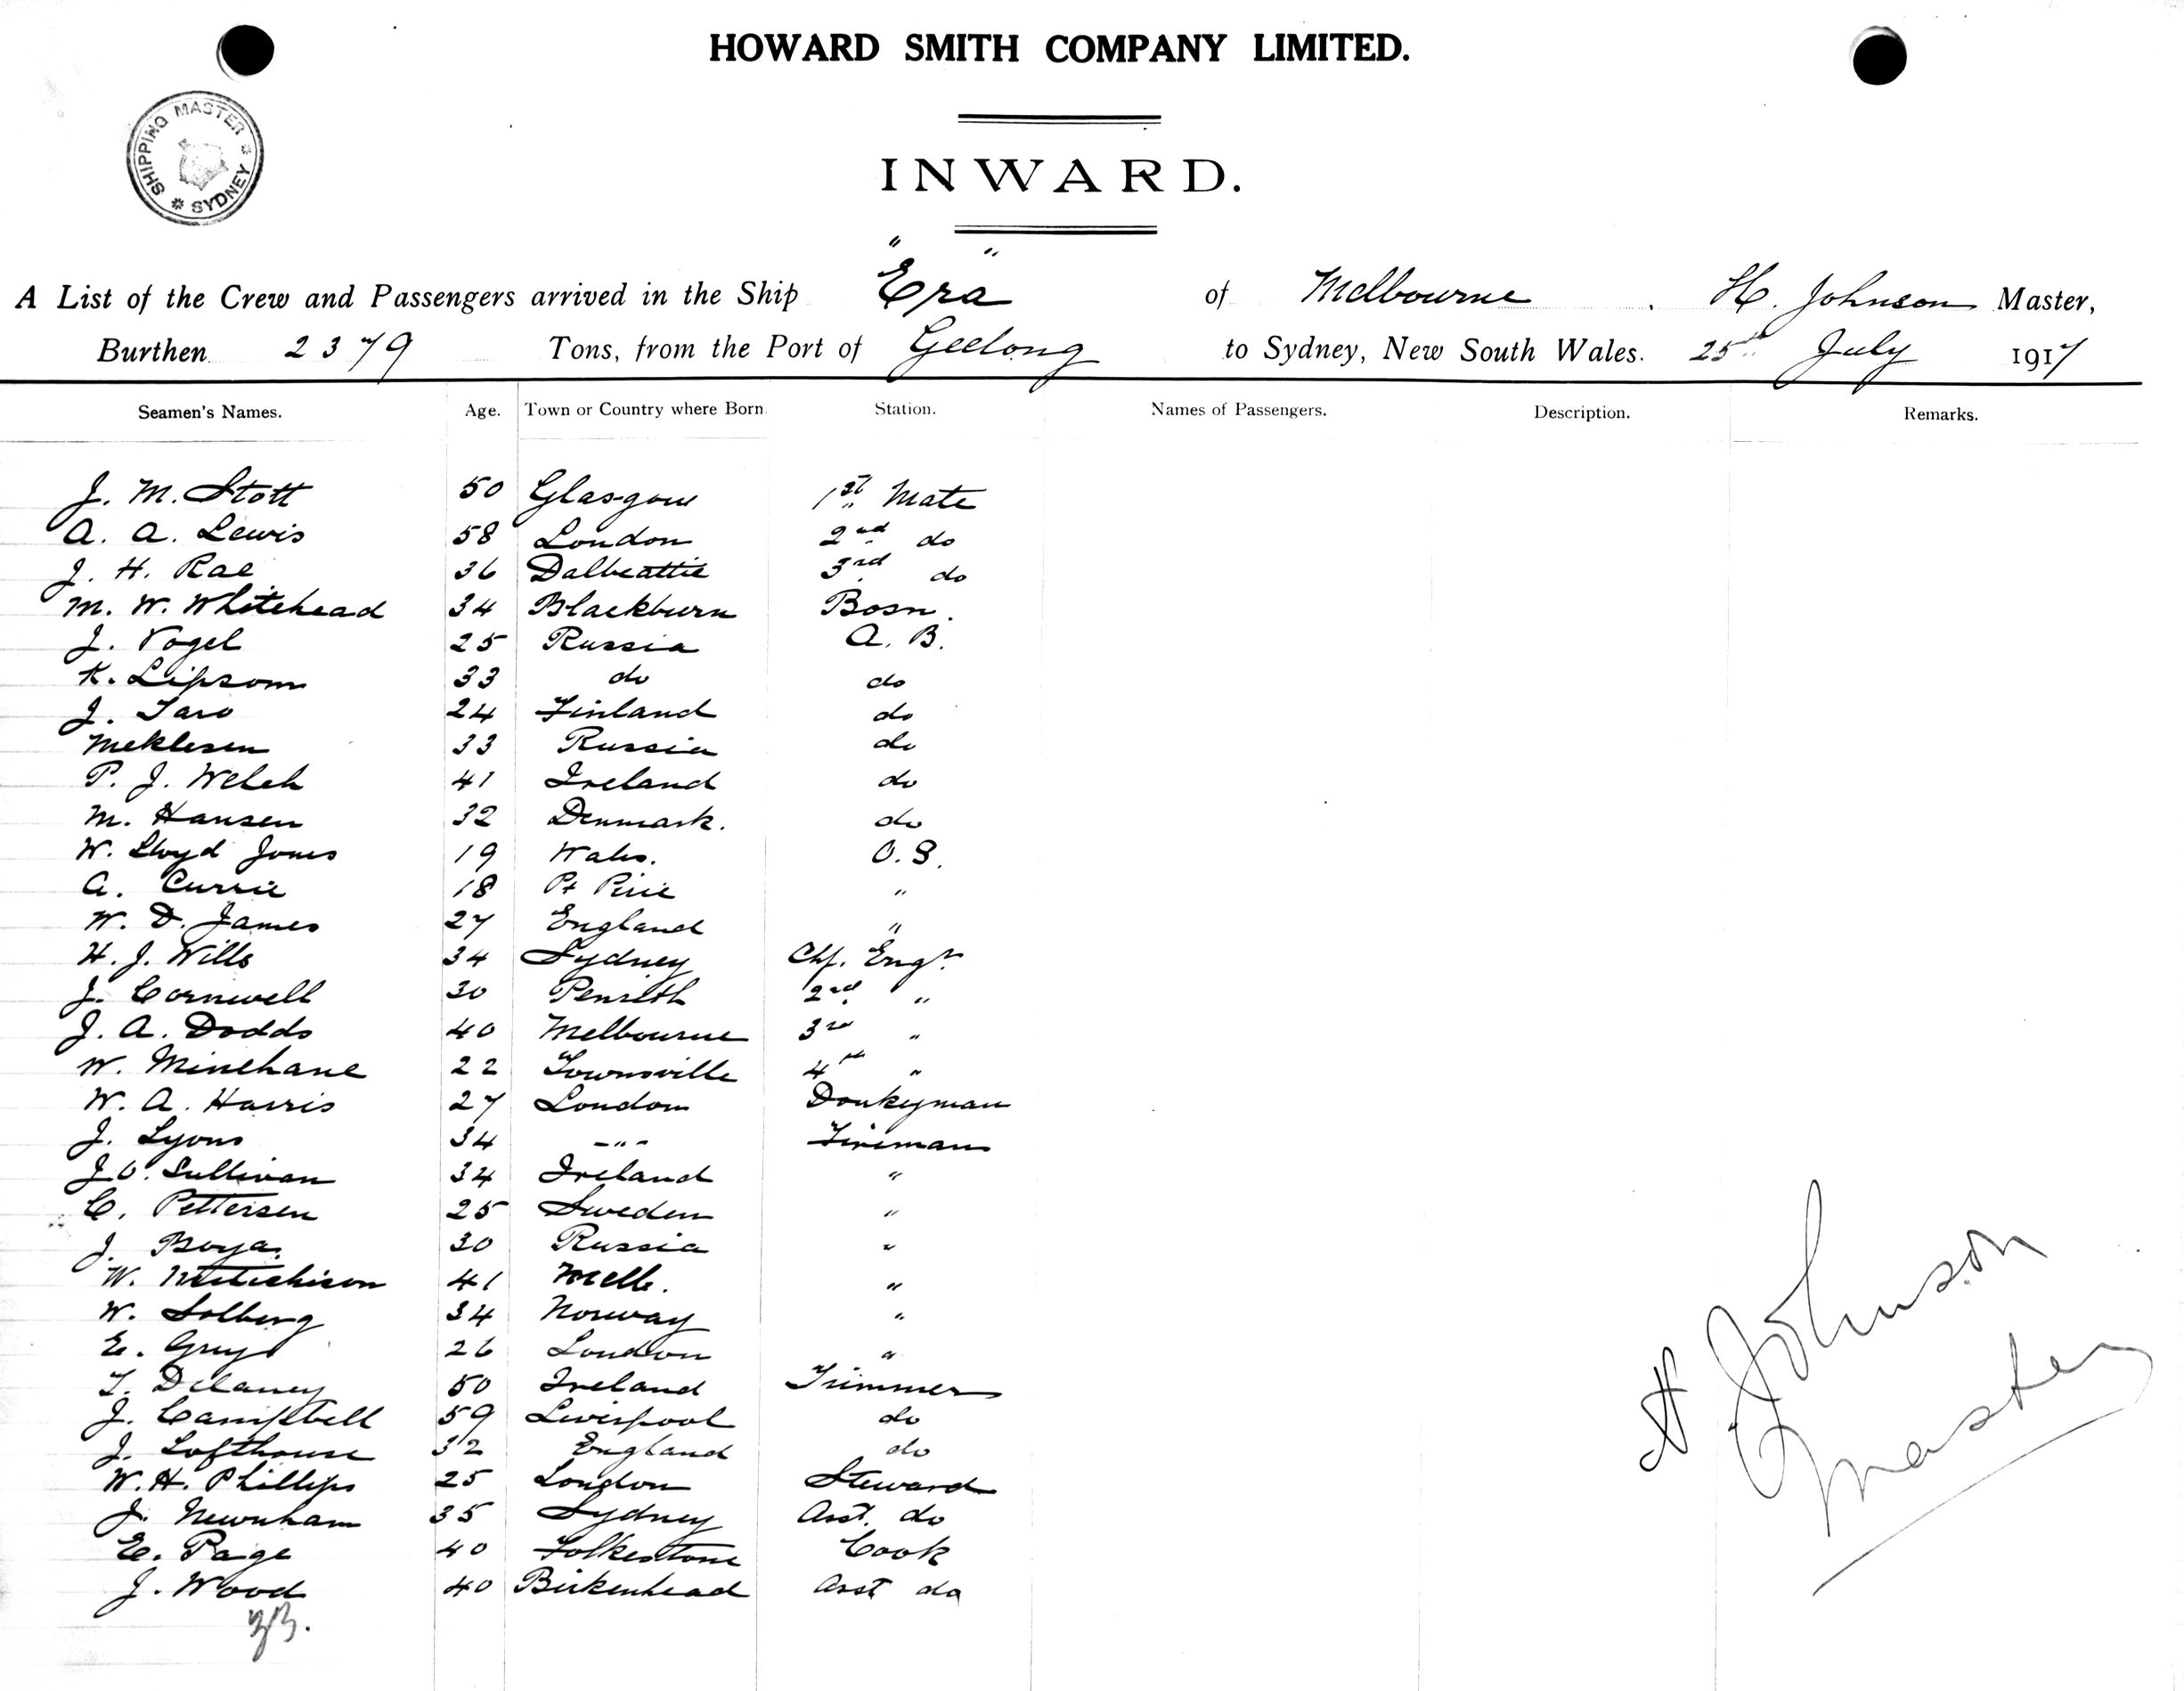 HOWARD SMITH COMPANY LIMITED.
SHIPPING MASTER * SYDNEY *
INWARD.
A List of the Crew and Passengers arrived in the Ship "Era" of Melbourne. H. Johnson Master,
Burthen 2379 Tons, from the Port of Geelong to Sydney, New South Wales. 25th July 1917
Seamen's Names. Age. Town or Country where Born. Station. Names of Passengers. Description. Remarks.
J. M. Stott 50 Glasgow 1st Mate
A. A. Lewis 58 London 2nd do
J. H. Rae 36 Dalbeattie 3rd do
M. W. Whitehead 34 Blackburn Bosn.
J. Vogel 25 Russia A. B.
K. Lipsom 33 do do
J. Taro 24 Finland do
Meklesen 33 Russia do
P. J. Welch 41 Ireland do
M. Hansen 32 Denmark. do
W. Lloyd Jones 19 Wales. O. S.
A. Currie 18 Pt Pirie "
W. D. James 27 England "
H. J. Wills 34 Sydney Chf. Engr.
J. Cornwell 30 Penrith 2nd "
J. A. Dodds 40 Melbourne 3rd "
W. Minehane 22 Townsville 4th "
W. A. Harris 27 London Donkeyman
J. Lyons 34 -"- Fireman
J. O'Sullivan 34 Ireland "
C. Pettersen 25 Sweden "
J. Boya. 30 Russia "
W. 41 Melb. "
W. Solberg 34 Norway "
E. Guy 26 London "
T. Delaney 50 Ireland Trimmer
J. Campbell 59 Liverpool do
J. Lofthouse 32 England do
W. H. Phillips 25 London Steward
J. Newnham 35 Sydney Asst. do
E. Page 40 Folkestone Cook
J. Wood 40 Birkenhead Asst do
H Johnson
Master